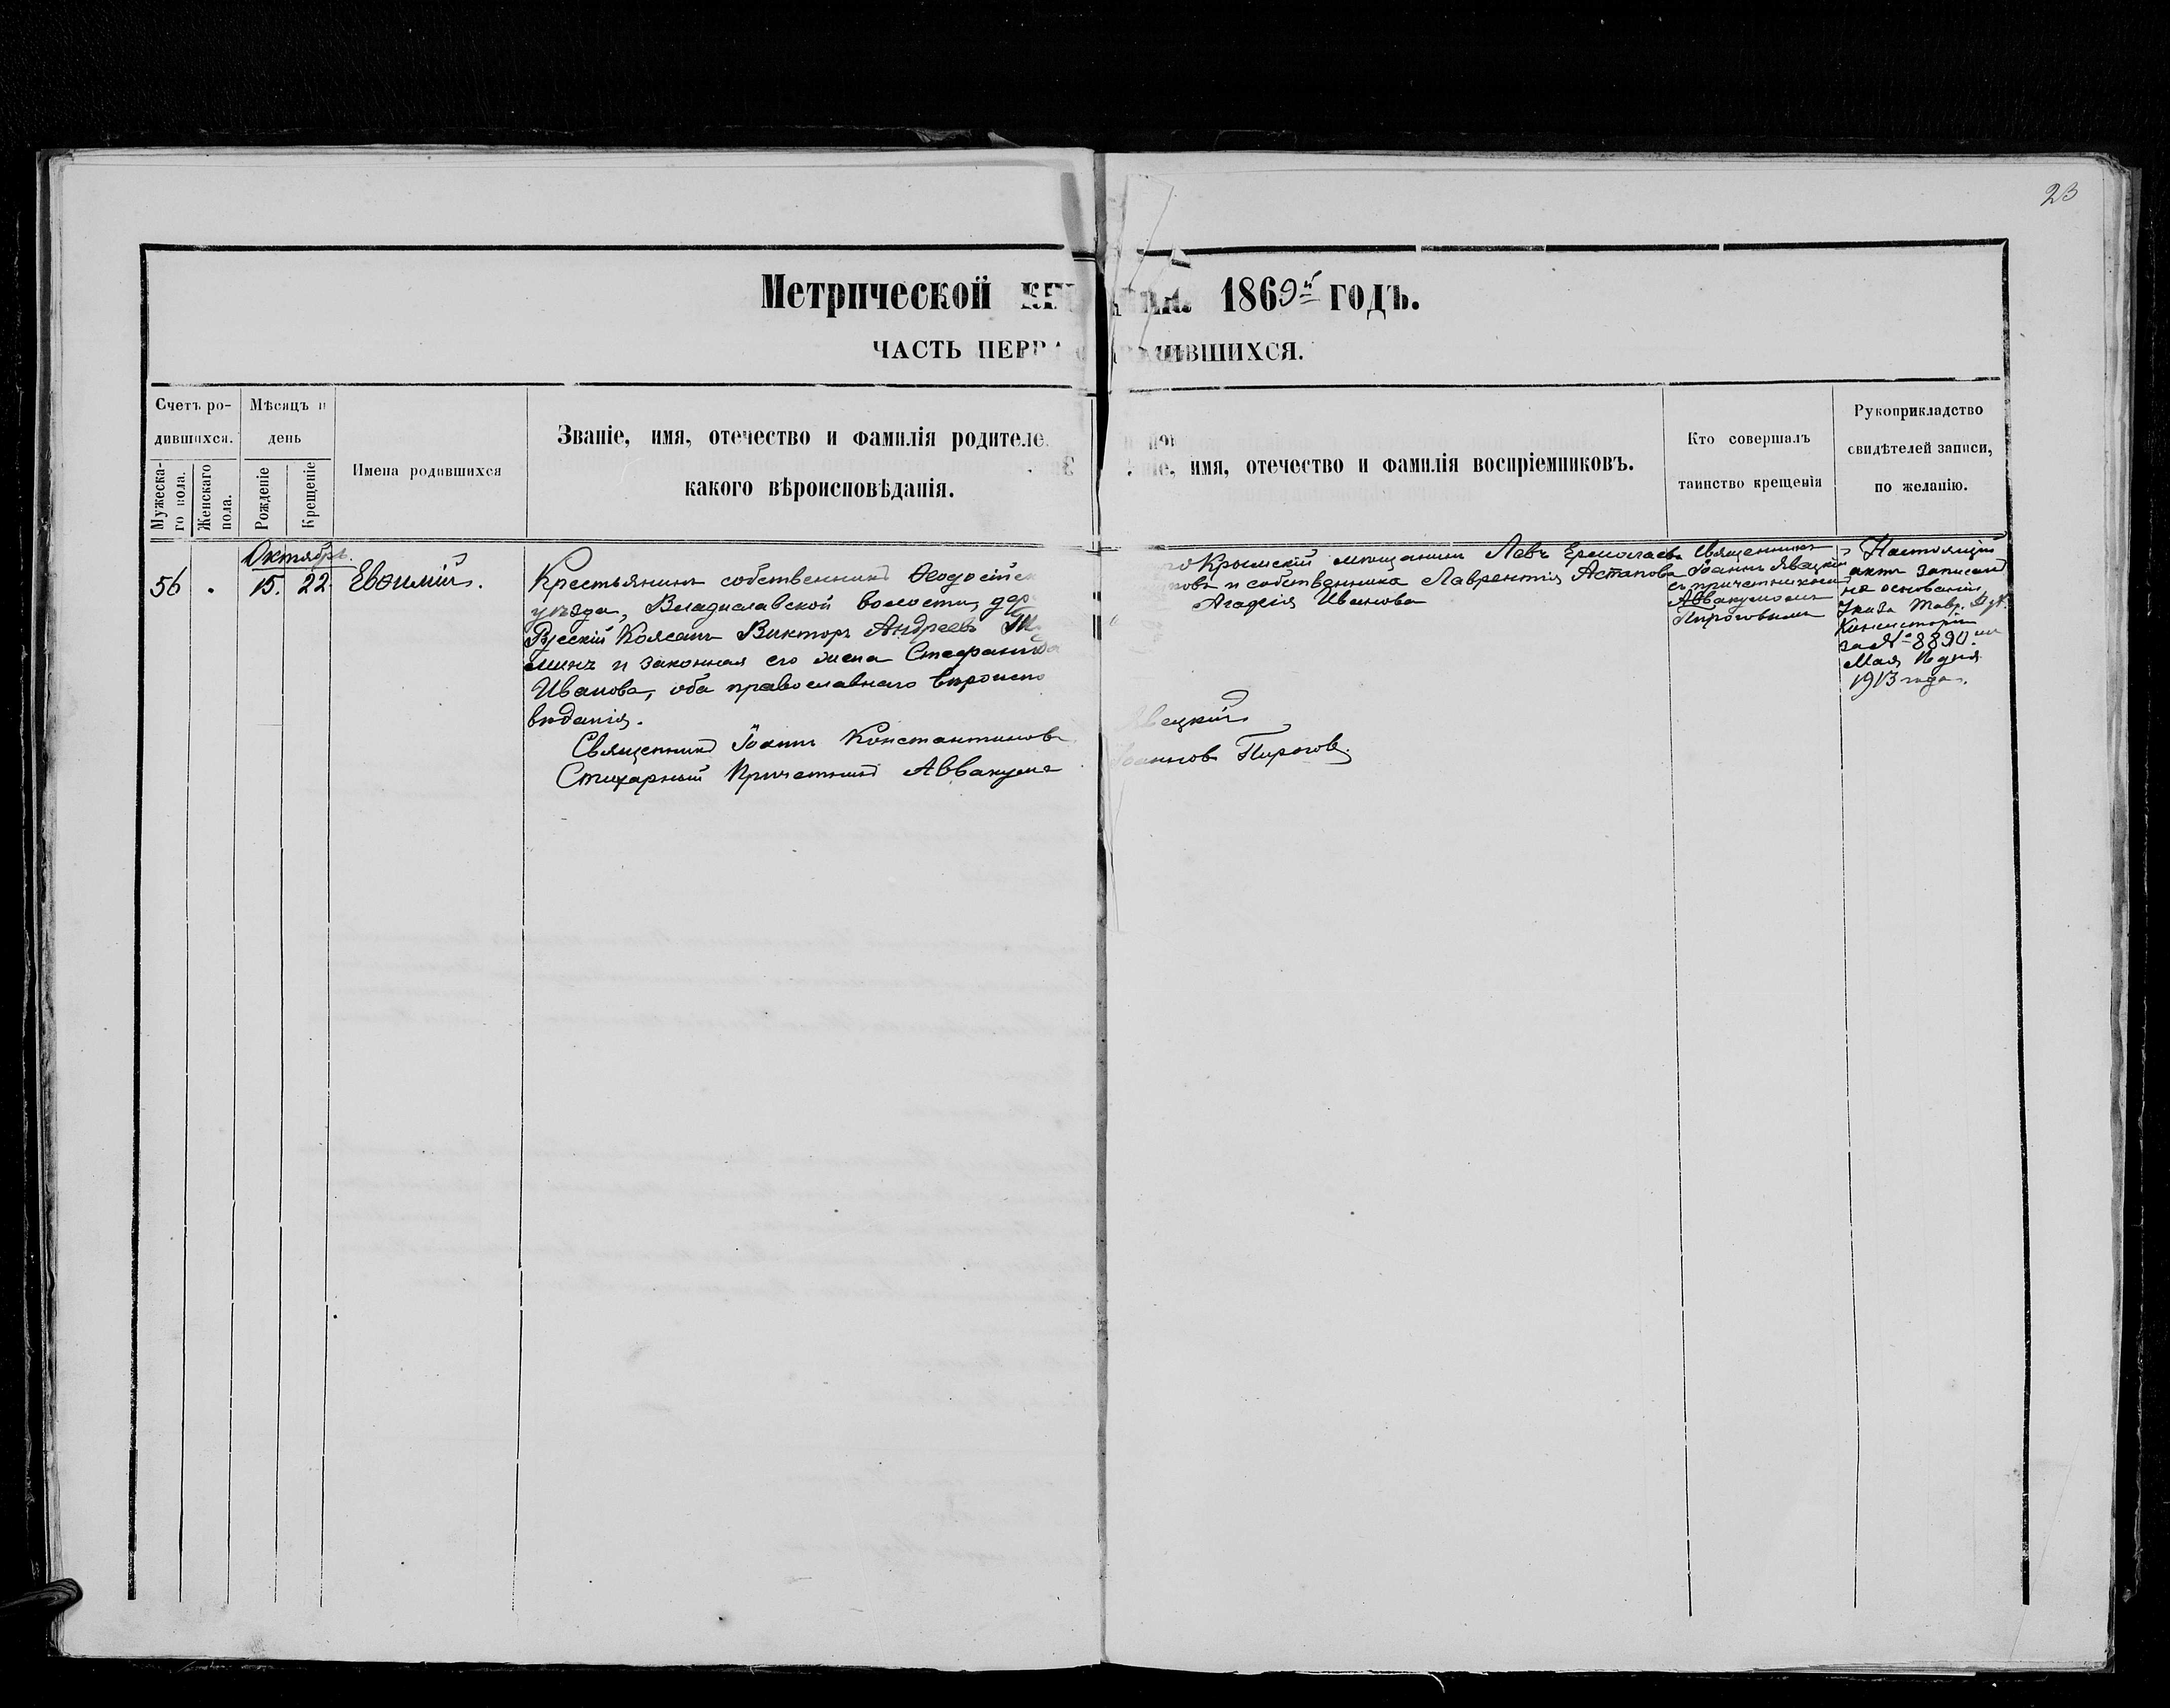 23
Метрической на 1869й годъ.
ЧАСТЬ ПЕРВА ДИВШИХСЯ.
Счетъ ро-
дившихся.
Мужеска-
го пола.
Женскаго
пола.
Мѣсяцъ и
день
Рожденіе
Крещеніе
Имена родившихся
Званіе, имя, отечество и фамилія родителе
какого вѣроисповѣданія.
ніе, имя, отечество и фамилія воспріемниковъ.
Кто совершалъ
таинство крещенія
Рукоприкладство
свидѣтелей записи,
по желанію.
Октябрь.
56 15. 22 Евѳимій.
Крестьянинъ собственникъ Ѳеодосійск
уѣзда, Владиславской волости, дер
Русскій Коясанъ Викторъ Андреевъ
минъ и законная его жена Стефанида
Иванова, оба православнаго вѣроиспо
вѣданія.
Священникъ Іоаннъ Константиновъ Явецкій
Стихарный Причетникъ Аввакумъ Іоанновъ Пироговъ.
го Крымскій мѣщанинъ Левъ Ермолаевъ
ковъ и собственника Лаврентія Астапова
Агафія Иванова
Священникъ
Іоаннъ Явецкій
съ причетникомъ
Аввакумомъ
Пироговымъ
Настоящій
актъ записанъ
на основаніи
Указа Тавр. Дух.
Консисторіи
за № 8890
Мая 16 дня
1913 года.